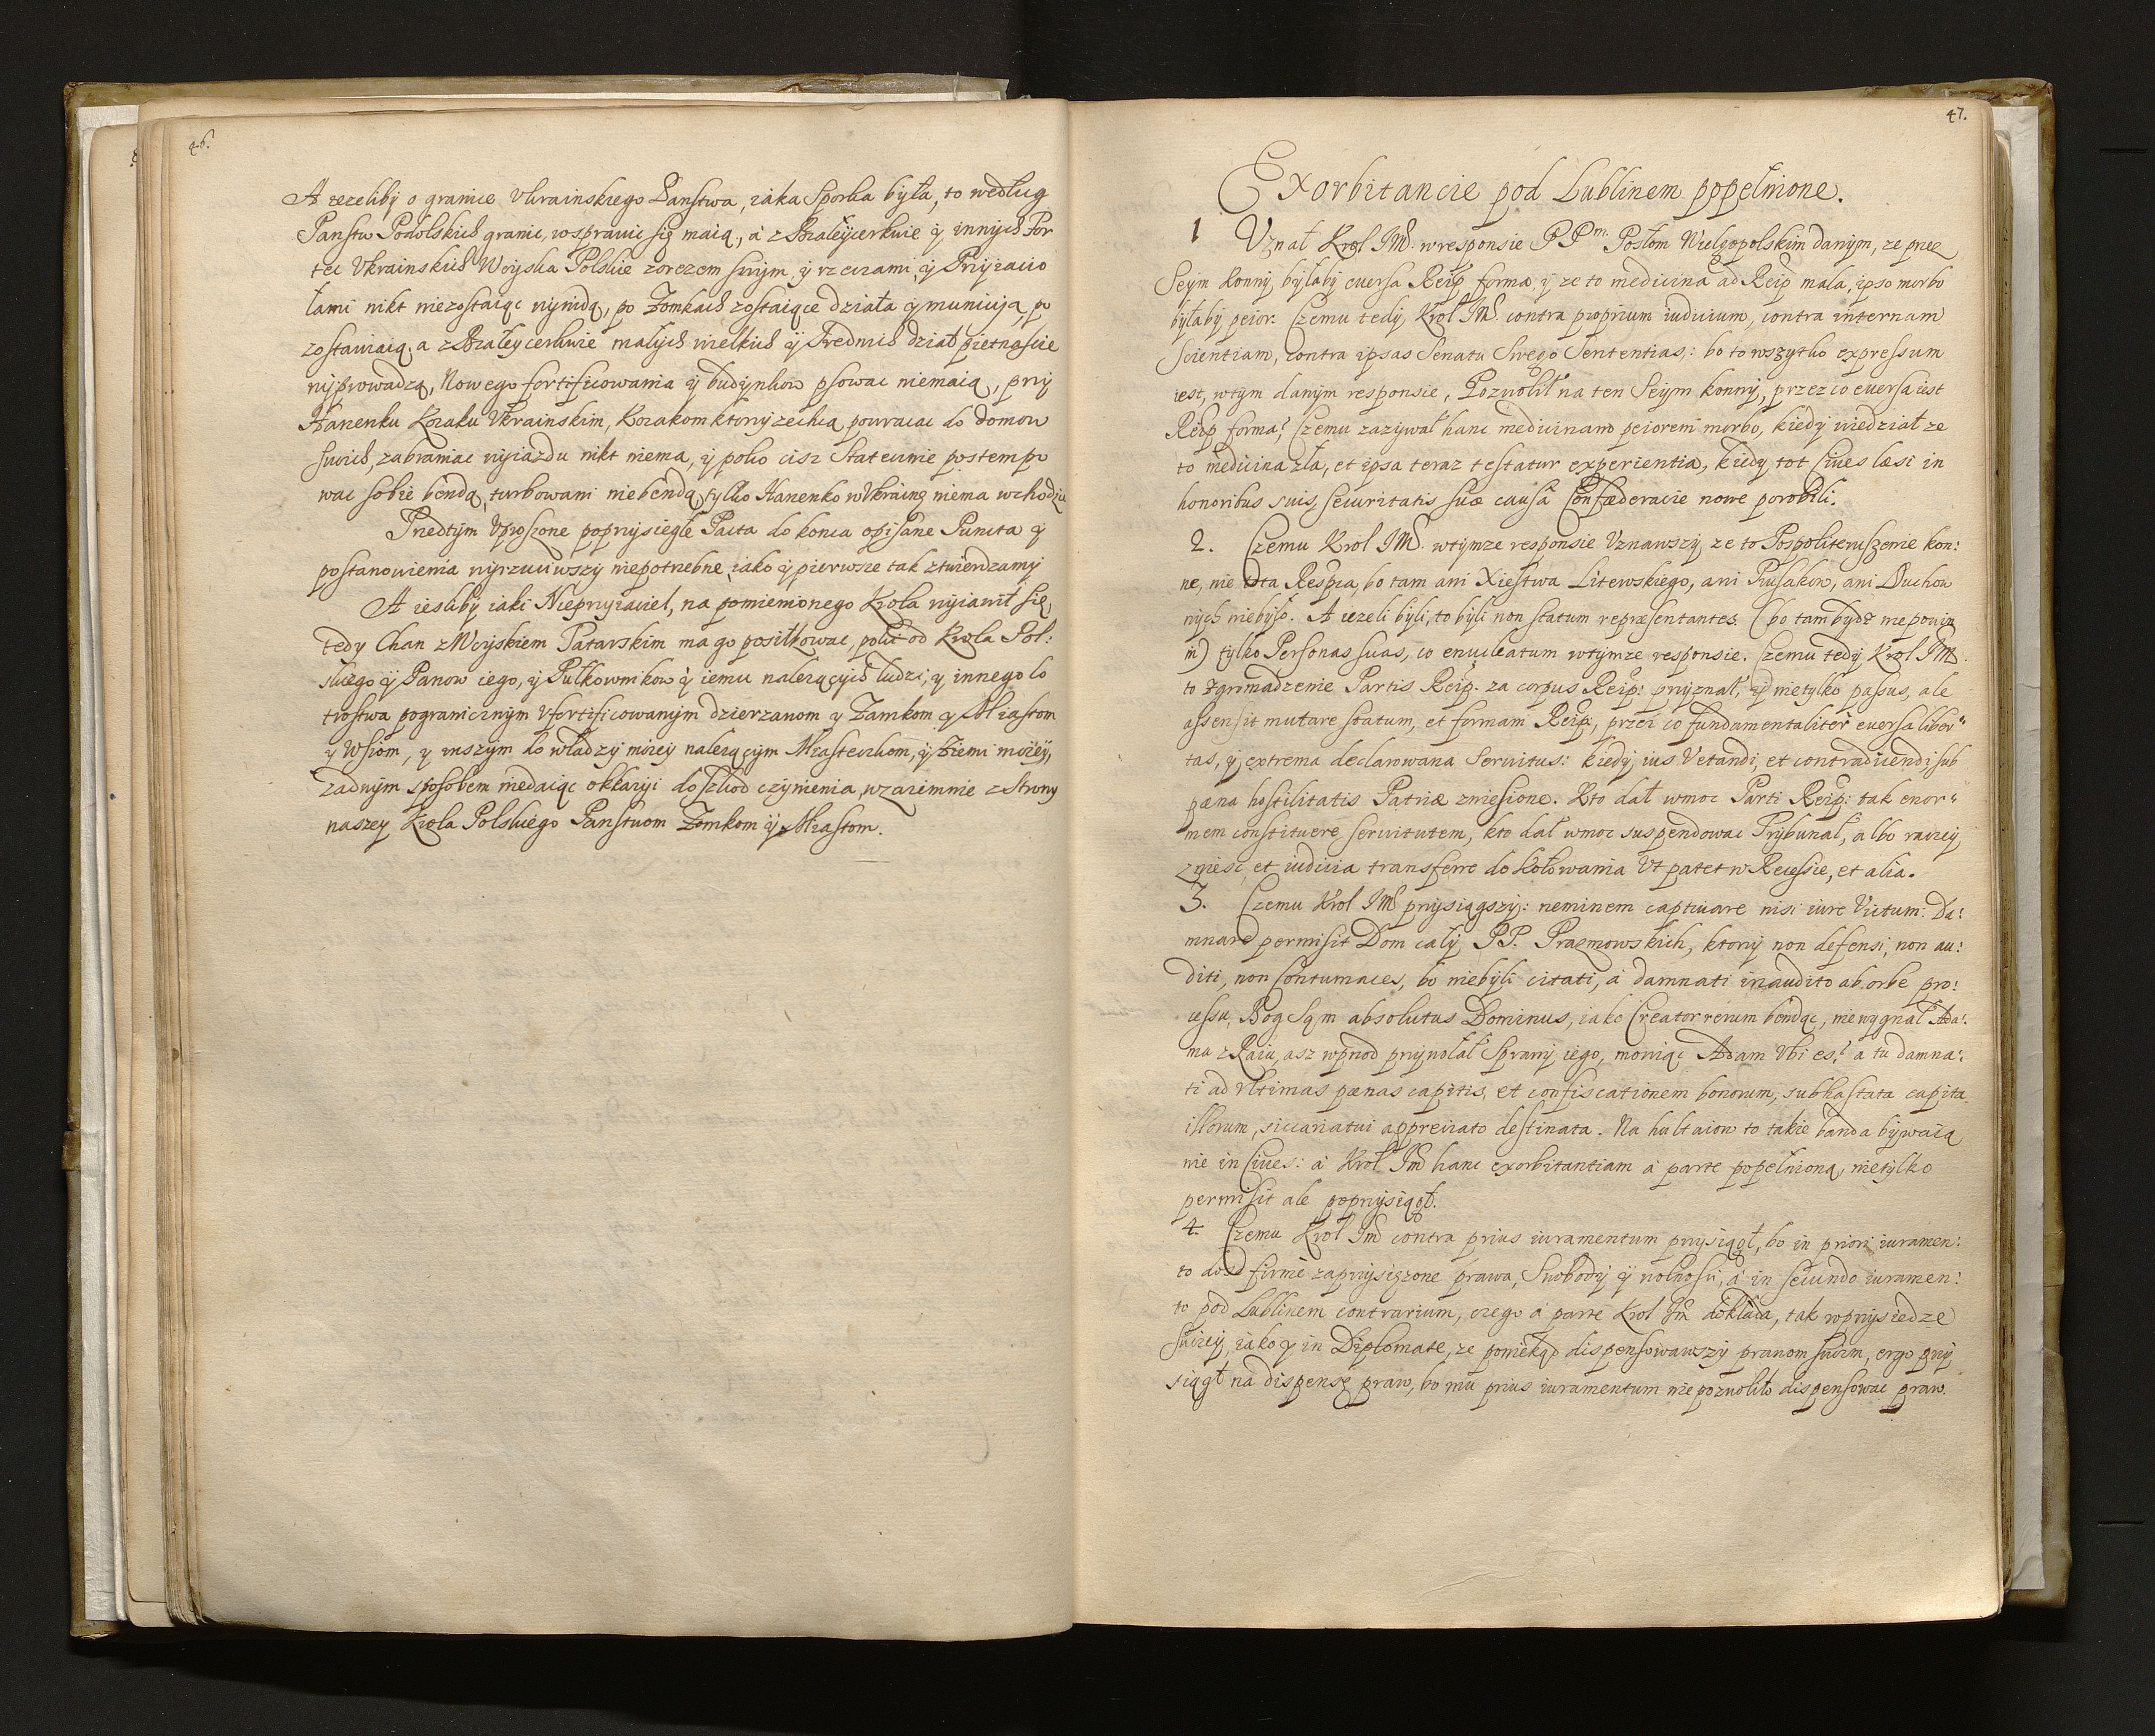 46.
A iezeliby o granice Vkrainskiego Panstwa, iaka Sporka była, to według
Panstw Podolskich granic, rospravic się maią, á z Białeycerkwie ÿ innych For
tec Vkrainskich Woyska Polskie zorezem swym, ÿ rzeczami, ÿ Przyiacio
łami nikt niezostaiąc wynidą, po Zomkach zostaiące działa ÿ municiją, po
zostawiaią, a z Białey cerkwie małych wielkich ÿ Srednich dział pietnascie
wyprowadzą, Nowego fortificowania ÿ budynkow psowac niemaią, przy
Hanenku Kozaku Vkrainskim, Kozakom ktorzy zechcą powracac do domow
swoich, zabraniac wyiazdu nikt niema, ÿ poko cisz Statecznie postempo
wac sobie bendą, turbowani niebendą, tylko Hanenko w Vkrainę niema wchodzic
Przedtym Vproszone poprzysiegłe Pacta do konca opisane Puncta ÿ
postanowienia wyrzuciwszy niepotrzebne, iako ÿ pierwsze tak ztwierdzamy
A iesliby iaki Nieprzyiaciel, na pomienionego Krola wyiawił się,
tedy Chan z Woyskiem Tatarskim ma go posiłkowac, polic od Krola Pol:
skiego ÿ Panow iego, ÿ Pułkownikow ÿ iemu nalezących ludzi, ÿ innego lo
trostwa pogranicznym Vfortificowanym dzierzanom ÿ Zamkom ÿ Miastom
ÿ Wsiom, ÿ inszym do władzy moiey nalezącym Miasteczkom, ÿ Ziemi moiey,
zadnym sposobem niedaiąc okkaziji do szkod czynienia, wzaiemnie z Strony
naszey Krola Polskiego Panstwom Zomkom ÿ Miastom.
47.
Exorbitancie pod Lublinem popełnione.
1 Vznał Krol JMć. w responsie PPm. Posłom Wielgopolskim danym, ze przez
Seym konny, byłaby euersa Reip forma, ÿ ze to medicina ad Reip mala, ipso morbo
byłaby peior. Czemu tedy Krol JMć contra proprium iudicium, contra internam
scientiam, contra ipsas Senatu Swego Sententias: bo to wszytko expressum
iest, w tym danym responsie, Pozwolił na ten Seym konny, przez co euersa iest
Reip forma? Czemu zazywał hanc medicinam peiorem morbo, kiedy wiedział ze
to medicina zła, et ipsa teraz testatur experientia, kiedy tot Ciues læsi in
honoribus suis, securitatis suæ causâ Confæderacie nowe porobili.
2. Czemu Krol JMć. w tymze responsie Vznawszy, ze to Pospoliteruszenie kon:
ne, nie tota Respca, bo tam ani Xiestwa Litewskiego, ani Prusakow, ani Duchow
nych niebyło. A iezeli byli, to byli non statum repræsentantes (bo tam bydz niepowin
ni) tylko Personas suas, co enucleatum w tymze responsie. Czemu tedy Krol JMć.
to zgromadzenie Partis Reip. za corpus Reip: przyznał, id nietylko passus, ale
assensit mutare statum, et formam Reip:, przez co fundamentaliter euersa liber"
tas, ÿ extrema declarowana Seruitus: kiedy ius Vetandi, et contradicendi sub
pæna hostilitatis Patriæ zniesione. Kto dał wmoc Parti Reip: tak enor"
mem constituere seruitutem, kto dał wmoc suspendowac Trybunał, albo raczey
zniesc, et iudicia transferre do kołowania Vt patet w Recessie, et alia.
3. Czemu Krol JMć przysiągszy: neminem captiuare nisi iure Victum: Da:
mnare permisit Dom cały PP. Prazmowskich, ktorzy non defensi, non au:
diti, non Contumaces, bo niebyli citati, á damnati inaudito ab orbe pro:
cessu, Bog Sąm absolutus Dominus, iako Creator rerum bendąc, niewygnał Ada:
ma z Raiu, asz wprzod przywołał Sprawy iego, mowiąc Adam Vbi es? á tu damna:
ti ad vltimas pænas capitis, et confiscationem bonorum, subhastata capita
illorum, siccariatui appreciato destinata. Na hultaiow to takie banda bywaią
nie in Ciues: á Krol Jmć hanc exorbitantiam á parte popełnioną, nietylko
permisit ale poprzysiągł.
4. Czemu Krol Jmć contra prius iuramentum przysiągł, bo in priori iuramen:
to dosc firmè zaprzysięzone prawa, Swobody ÿ wolnosci, á in secundo iuramen:
to pod Lublinem contrarium, czego á parte Krol Jmć dokłada, tak w przysiedze
swoiey, iako ÿ in Diplomate, ze poniekąd dispensowawszy prawom swoim, ergo przy
siągł na dispensę praw, bo mu prius iuramentum niepozwoliło dispensowac praw.